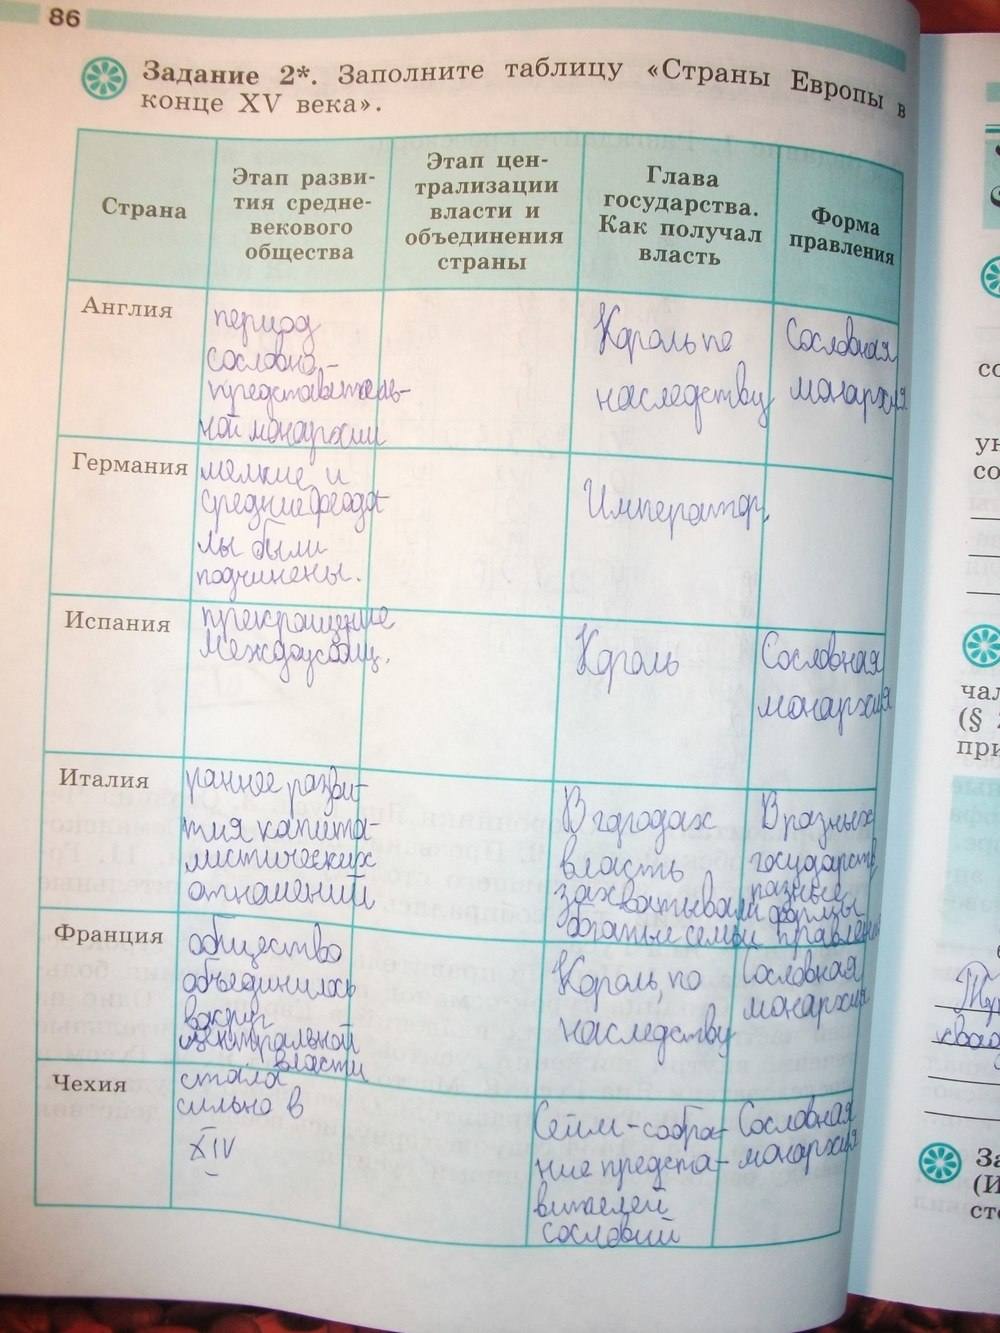 86
Задание 2*. Заполните таблицу «Страны Европы в
конце XV века».
Страна
Этап разви-
тия средне-
векового
общества
Этап цен-
трализации
власти и
объединения
страны
Глава
государства.
Как получал
власть
Форма
правления
Англия
период
сословно-
представитель-
ной монархии
Король по
наследству
Сословная
монархия
Германия
мелкие и
средние феода
лы были
подчинены.
Император.
Испания
прекращение
междоусобиц.
Король
Сословная
монархия
Италия
раннее разви-
тия капита-
листических
отношений
В городах
власть
захватывали
богатые семьи
В разных
государств.
разные
формы
правления
Франция
общество
объединилась
вокруг
центральной
власти
Король, по
наследству
Сословная
монархия
Чехия
стала
сильно в
XIV
Сейм-собра-
ние предста-
вителей
сословий
Сословная
монархия
со
ун
со
чал
(§
при
За
(И
сто